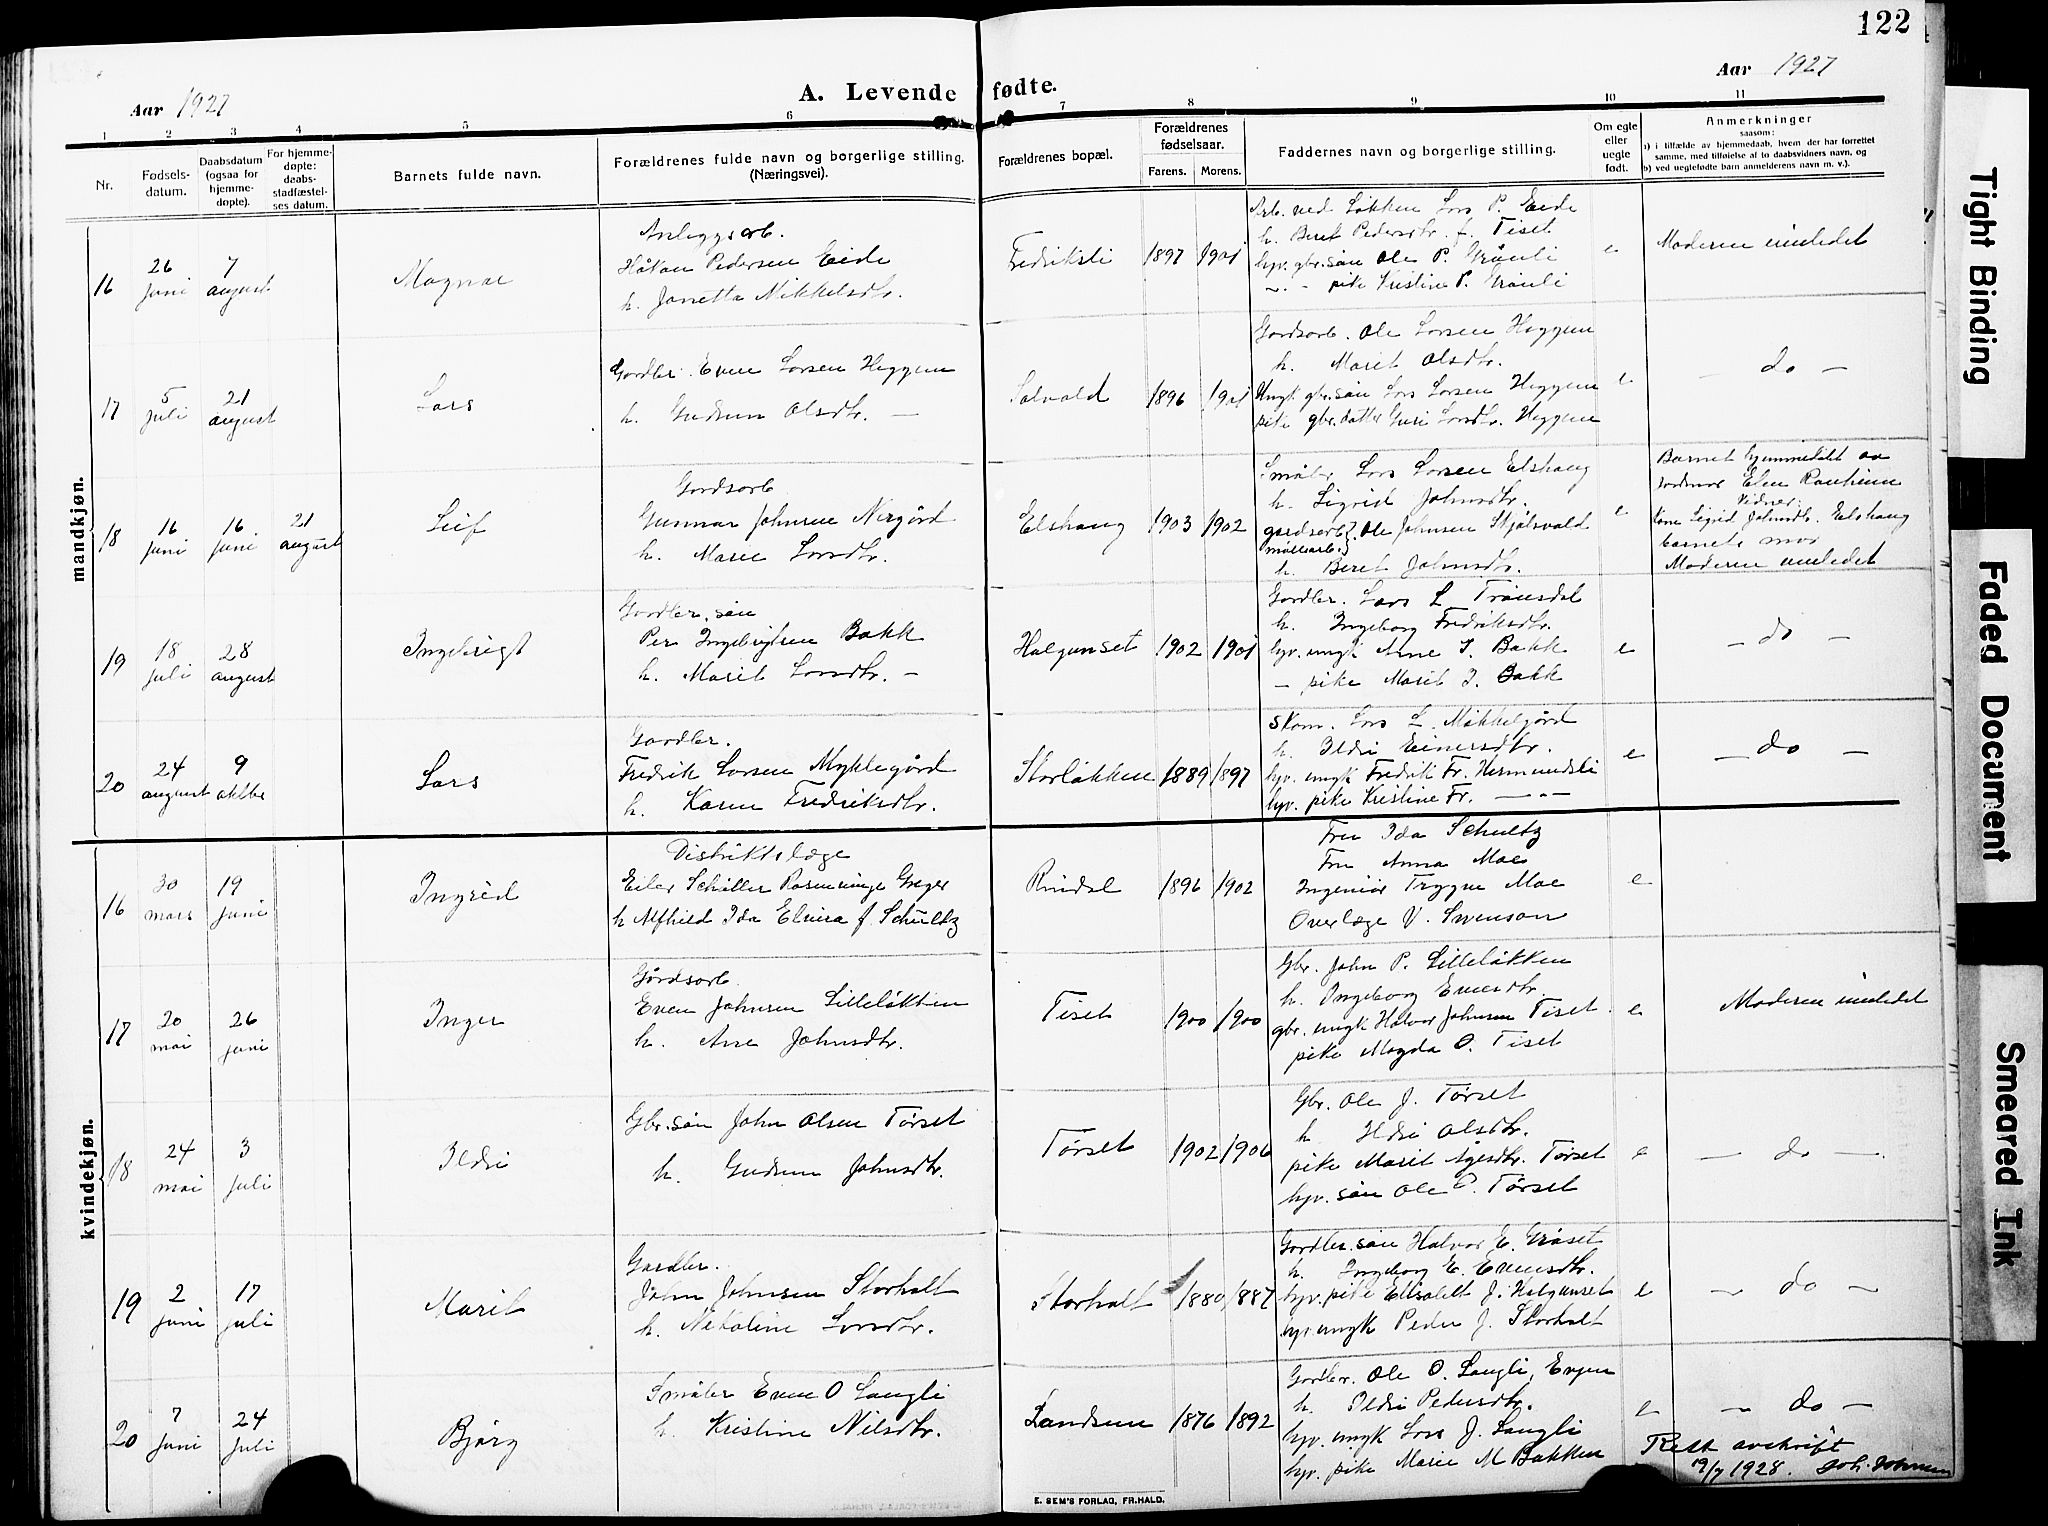 122
Aar 1927
A. Levende fødte.
Aar 1927
1 2 3 4 5 6 7 8 9 10 11
Nr.
Fødsels-
datum.
Daabsdatum
(ogsaa for
hjemme-
døpte).
For hjemme-
døpte:
daabs-
stadfæstel-
ses datum.
Barnets fulde navn.
Forældrenes fulde navn og borgerlige stilling.
(Næringsvei).
Forældrenes bopæl.
Forældrenes
fødselsaar.
Farens. Morens.
Faddernes navn og borgerlige stilling.
Om egte
eller
uegte
født.
Anmerkninger
saasom:
a) i tilfælde av hjemmedaab, hvem der har forrettet
samme, med tilføielse af to daabsvidners navn, og
b) ved uegtefødte barn anmelderens navn m. v.).
mandkjøn.
16
26
juni
7
august
Magnar
Anleggsarb.
Håkan Pedersen Eide
h. Janetta Mikkelsdtr.
Fredriksli
1897 1901
Arb. ved Løkken Lars P. Eide
h. Beret Pedersdtr. f. Tiset
hjv. gbr. søn Ole P. Grønli
— pike Kristine P. Grønli
e
Moderen innledet
17
5
juli
21
august
Lars
Gardbr. Even Larsen Heggem
h. Gudrun Olsdtr. —
Solvold
1896 1901
Gardsarb. Ole Larsen Heggem
h. Marit Olsdtr.
Ungk gbr. søn Lars Larsen Heggem
pike gbr. datter Guri Larsdtr. Heggem
e
— do —
18
16
juni
16
juni
21
august
Leif
Gardsarb
Gunnar Johnsen Nergård
h. Marie Larsdtr.
Elshaug
1903 1902
Småbr Lars Larsen Elshaug
h. Sigrid Johnsdtr.
gardsarb. Ole Johnsen Skjølsvold
møllearb.
h. Beret Johnsdtr.
e
Barnet hjemmedøbt av
jordmor Elen Ranheim
Vidner:
kone Sigrid Johnsdtr. Elshaug
barnets mor
Moderen innledet
19
18
juli
28
august
Ingebrigt
Gardbr. søn
Per Ingebrigtsen Bakk
h. Marit Larsdtr. —
Halgunset
1902 1901
Gardbr. Lars L. Trønsdal
h. Ingeborg Fredriksdtr.
hjv. ungk Arne I. Bakk
— pike Marit I. Bakk
e
— do —
20
24
august
9
oktbr
Lars
Gardbr.
Fredrik Larsen Myklegård
h. Karen Fredriksdtr.
Storløkken
1889 1897
Skom. Lars L. Mikkelgård
h. Ildri Einersdtr.
hjv. ungk Fredrik Fr. Hermundsli
hjv. pike Kristine Fr. —"—
e
— do —
kvindekjøn.
16
30
mars
19
juni
Ingrid
Distriktslæge
Eiler Schiller Rosenvinge Greger
h Alfhild Ida Elvira f. Schultz
Rindal
1896 1902
Fru Ida Schultz
Fru Anna Moe
Ingeniør Trygve Moe
Overlæge V. Swenson
e
17
20
mai
26
juni
Inger
Gårdsarb.
Even Johnsen Lilleløkken
h. Ane Johnsdtr.
Tiset
1900 1900
Gbr. John P. Lilleløkken
h. Ingeborg Evensdtr.
gbr. ungk Halvor Johnsen Tiset
pike Magda O. Tiset
e
Moderen innledet
18
24
mai
3
juli
Ildri
Gbr. søn John Olsen Tørset
h. Gudrun Johnsdtr.
Tørset
1902 1906
Gbr. Ole J. Tørset
h Ildri Olsdtr.
pike Marit Ågesdtr. Tørset
hjv. søn Ole P. Tørset
e
— do —
19
2
juni
17
juli
Marit
Gardbr.
John Johnsen Storholt
h. Nikoline Larsdtr.
Storholt
1880 1887
Gardbr. søn Halvor E. Grøset
h. Ingeborg E. Evensdtr.
hjv. pike Elisabet J. Halgunset
hjv. ungk Peder J. Storholt
e
— do —
20
7
juni
24
juli
Bjørg
Småbr Even O Langli
h. Kristine Nilsdtr.
Landsem
1876 1892
Gardbr. Ole O. Langli, Evjen
h. Ildri Pedersdtr.
hjv. ungk Lars J. Langli
hjv. pike Marie M Bakken
e
— do —
Rett avskrift
19/7 1928. Joh. Johnsen
E. SEM'S FORLAG, FR.HALD.
Tight Binding
Faded Document
Smeared Ink